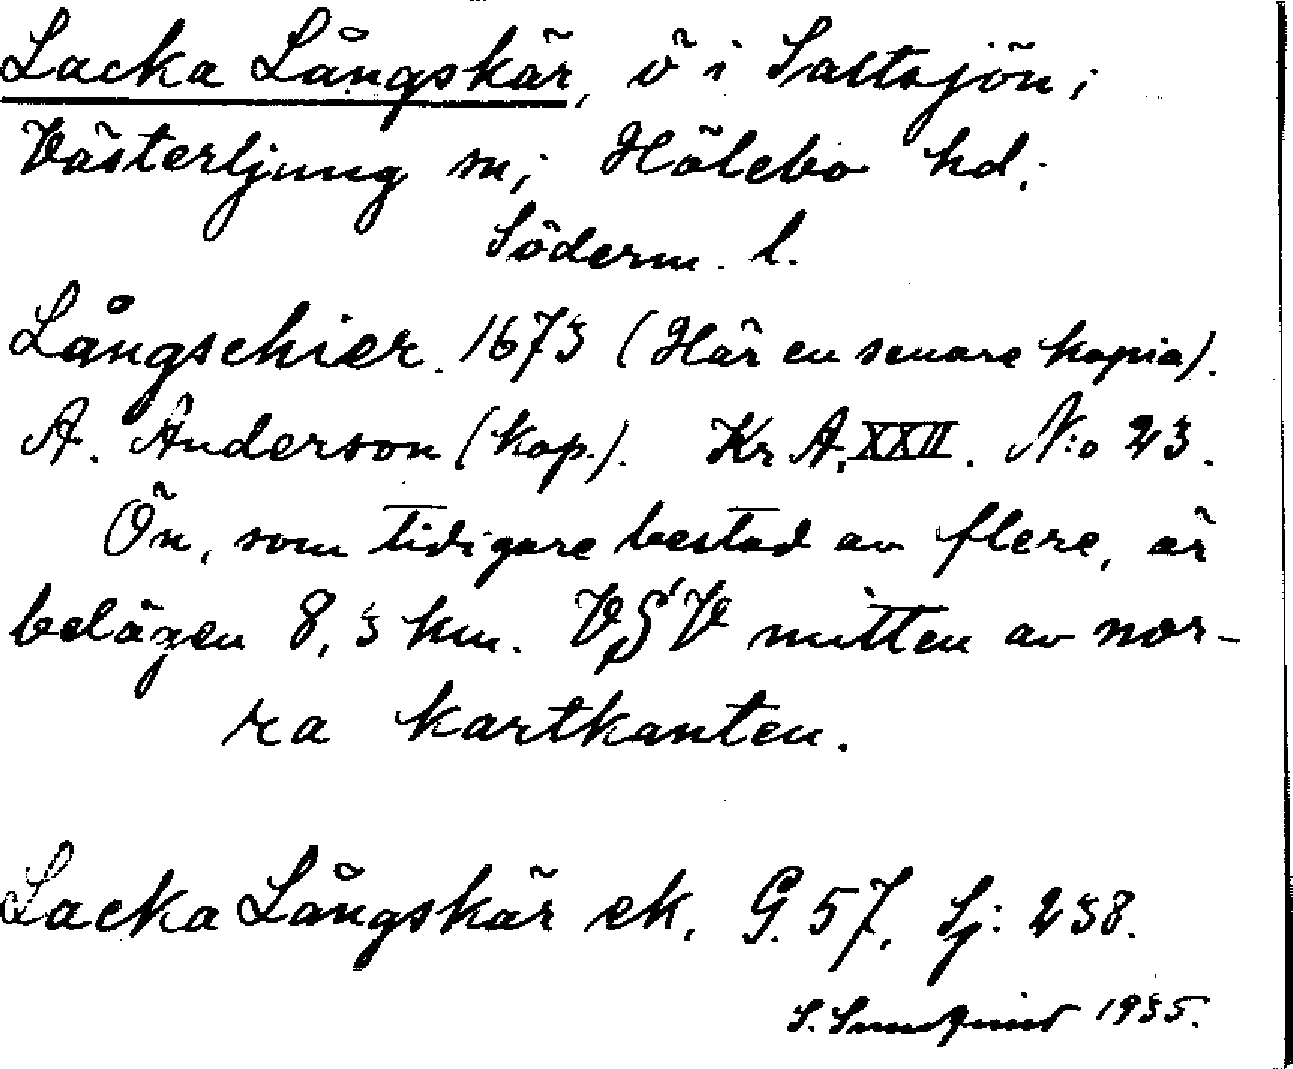 Lacka Långskär, ö i Saltsjön;
Västerljung sn; Hölebo hd.
Söderm. l.
Långschier. 1673 (Här en senare kopia).
A. Anderson (kop.). Kr A. XXII. N:o 23.
Ön, som tidigare bestod av flere, är
belägen 8,3 km. VSV mitten av nor-
ra kartkanten.
Lacka Långskär ek. G. 57, Sj: 238.
S. 1935.